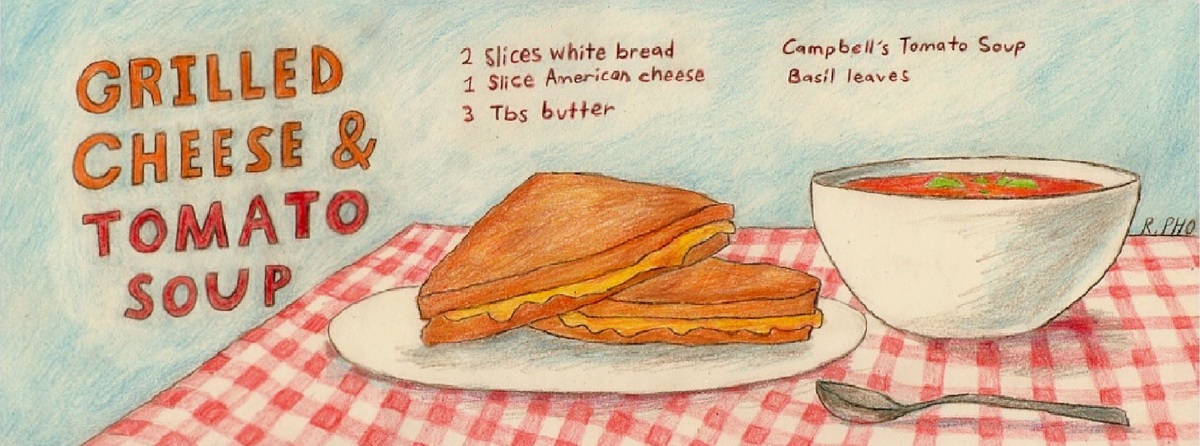 GRILLED
CHEESE &
TOMATO
SOUP
2 Slices white bread
1 Slice American cheese
3 Tbs butter
Campbell's Tomato Soup
Basil leaves
R. PHO